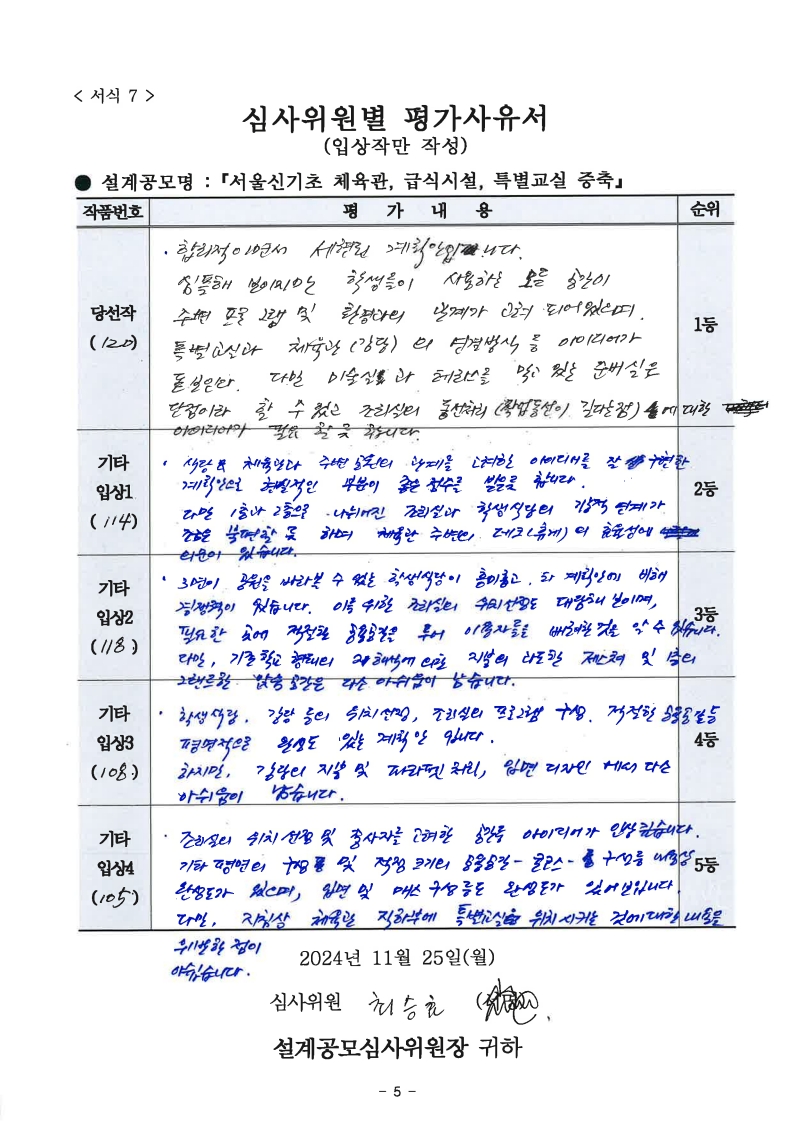 < 서식 7 >
심사위원별 평가사유서
(입상작만 작성)
● 설계공모명 : 『서울신기초 체육관, 급식시설, 특별교실 증축』
작품번호 평 가 내 용 순위
당선작
(120)
· 합리적이면서 세련된 계획안입니다.
심플해 보이지만 학생들이 사용하는 모든 공간이
주변 프로그램 및 환경과의 관계가 고려 되어있으며.
특별교실과 체육관(강당)의 연결방식 등 아이디어가
돋보인다. 다만 미술실과 테라스를 막고 있는 준비실은
단점이라 할 수 있고 조리실의 동선처리(작업동선이 길다는점)에 대한
아이디어가 필요 할 듯 합니다.
1등
기타
입상1
(114)
· 식당과 체육관과 주변 공원의 관계를 고려한 아이디어를 잘 구현한
계획안으로 부분이 좋은 점수를 받을듯 합니다.
다만 1층과 2층으로 나뉘어진 조리실과 학생식당의 연계가
불편할 듯 하며 체육관 주변의 데크(휴게)의 효율성에
의문이 있습니다.
2등
기타
입상2
(118)
· 3면이 공원을 바라볼 수 있는 학생식당이 흥미롭고. 타 계획안에 비해
경쟁력이 있습니다. 이를 위한 조리실의 위치선정도 대응해 보이며,
필요한 곳에 적절한 공용공간을 두어 이용자들을 배려한 것을 알 수 있습니다.
다만, 기존학교 형태의 재해석에 의한 지붕의 과도한 제스쳐 및
공간은 다소 아쉬움이 남습니다.
3등
기타
입상3
(108)
· 학생식당, 강당 등의 위치선정, 조리실의 프로그램 구성. 적절한 공용공간등
평면적으로 완성도 있는 계획안 입니다.
하지만, 강당의 지붕 및 파라펫 처리, 입면 디자인 에서 다소
아쉬움이 남습니다.
4등
기타
입상4
(105)
· 조리실의 위치선정 및 종사자를 고려한 공간등 아이디어가 인상 깊습니다.
기타 평면의 구성 및 적정 크기의 공용공간 - - 구성등
완성도가 있으며, 입면 및 매스 구성등도 완성도가 있어보입니다.
다만, 지침상 체육관 직하부에 특별교실 위치시키는 것에대한 내용을
위반한 점이
아쉽습니다.
5등
2024년 11월 25일(월)
심사위원 최승호
설계공모심사위원장 귀하
- 5 -